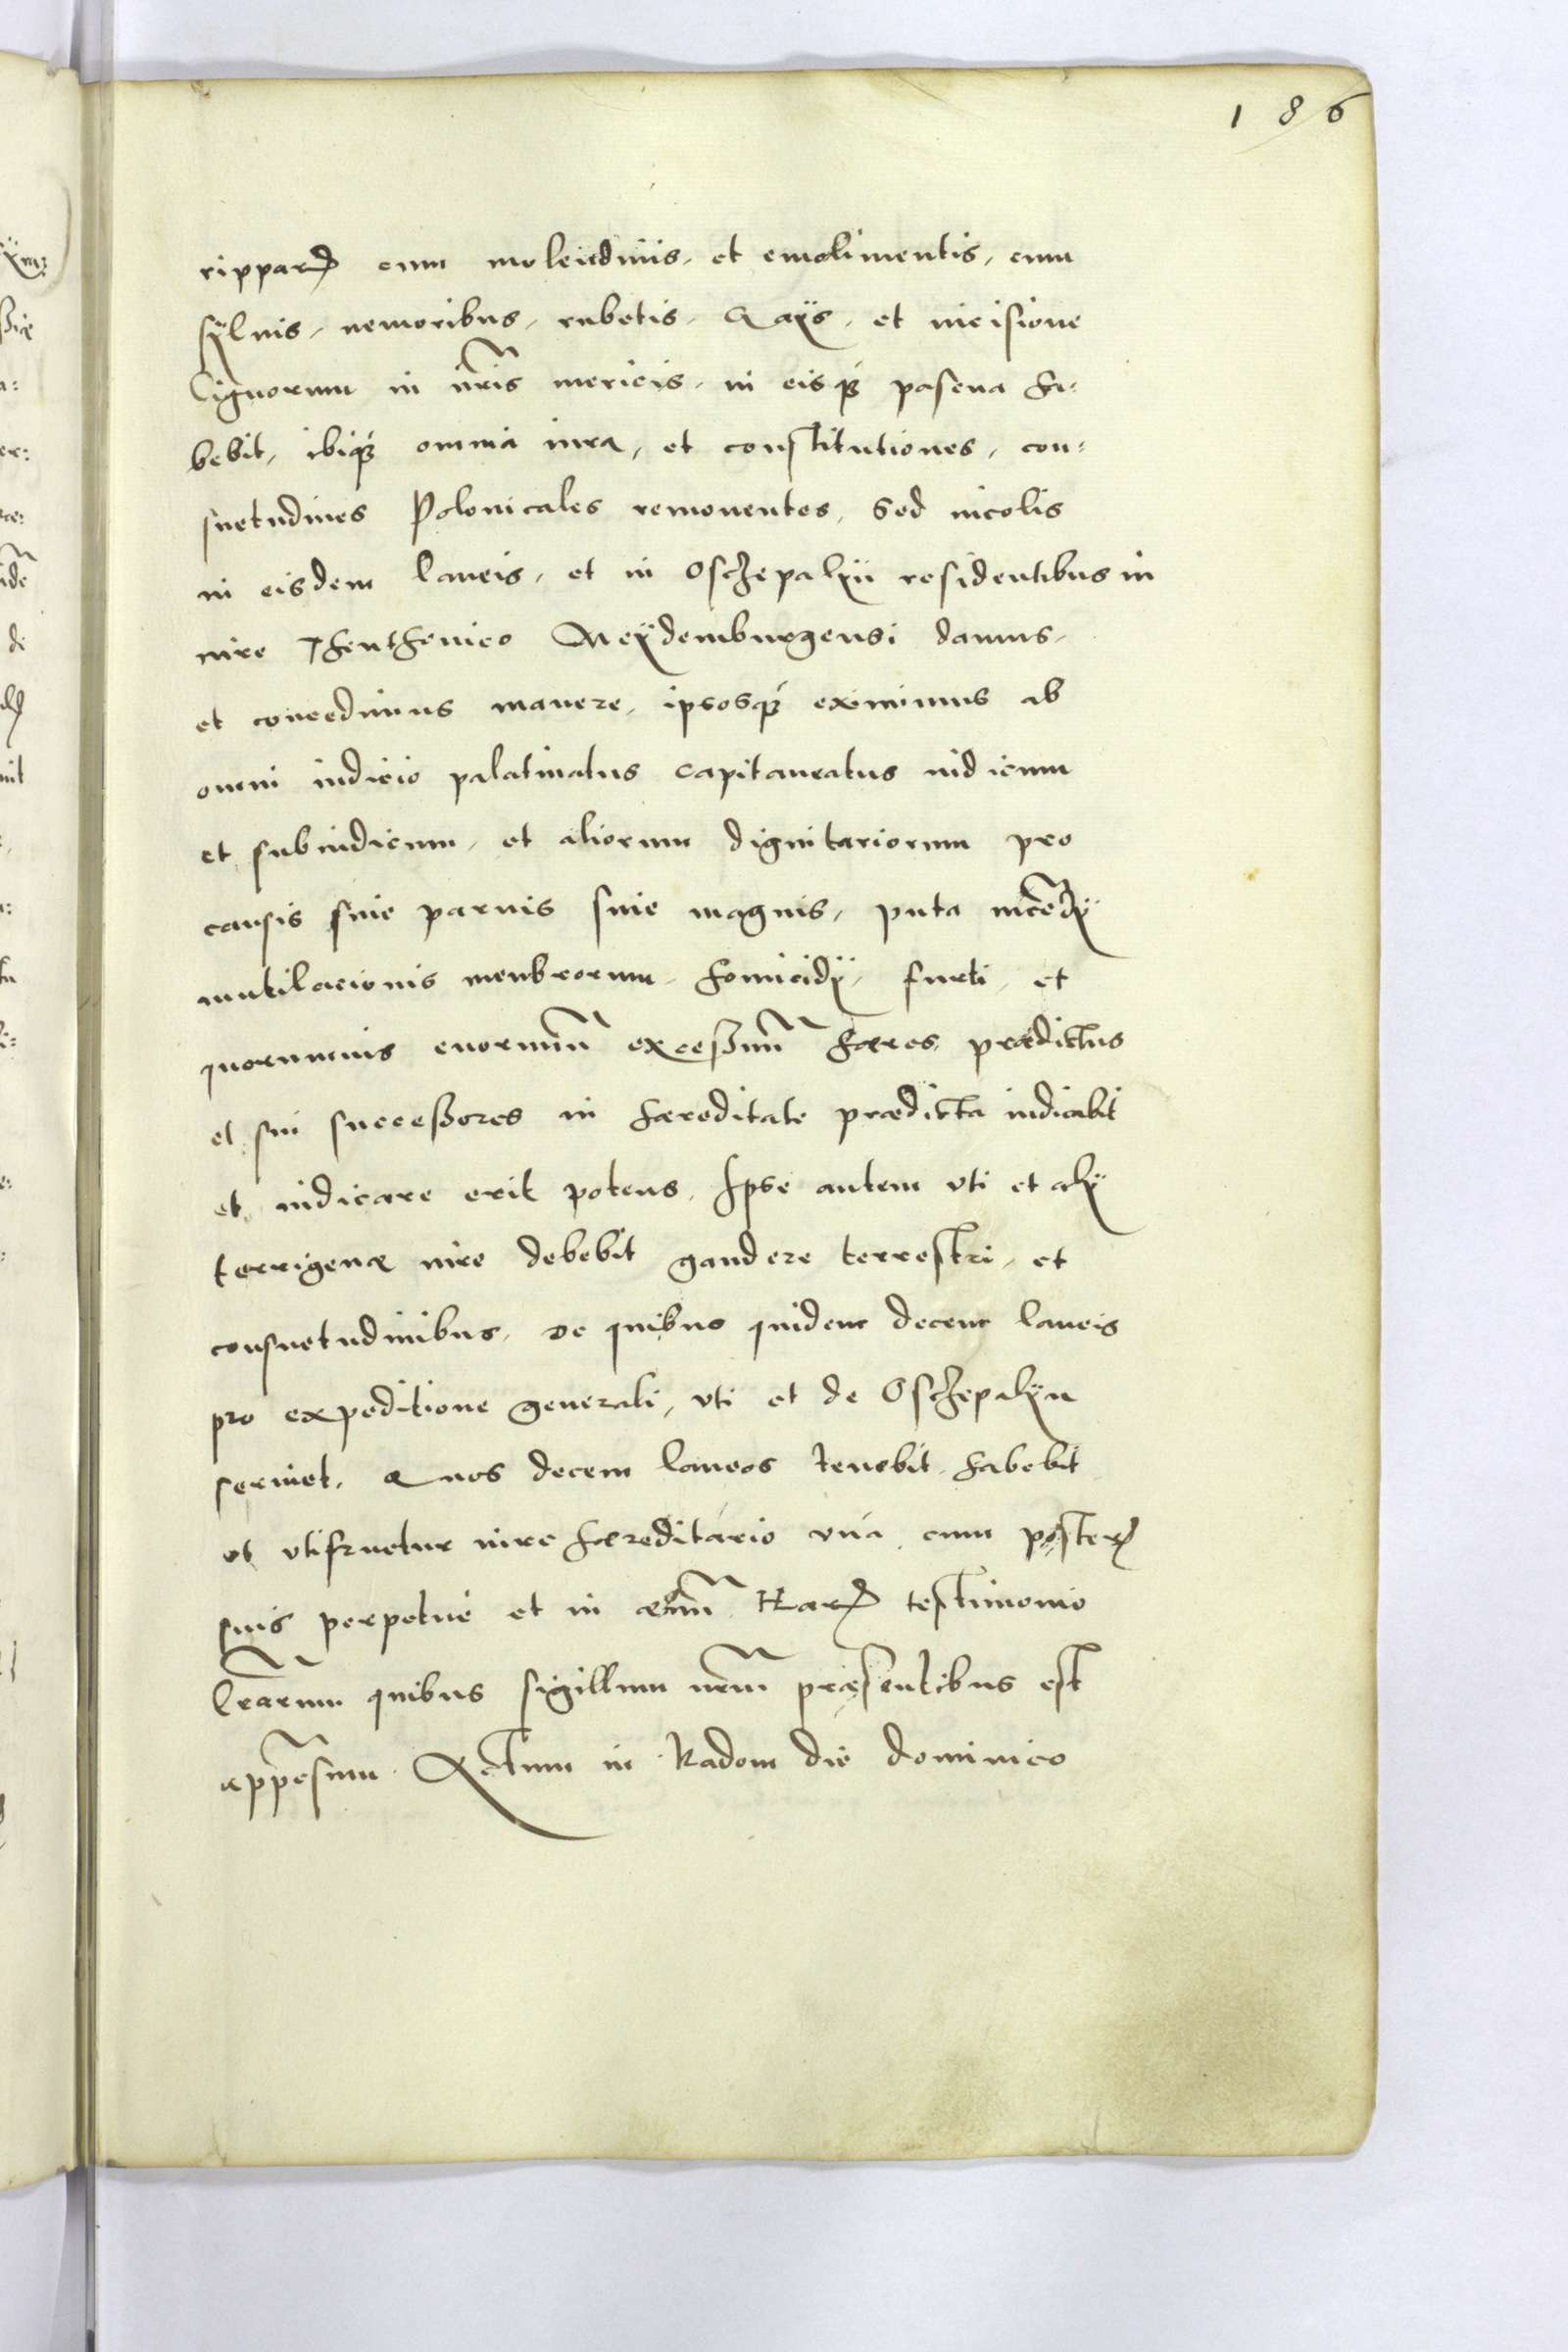 186
rippar₎ cum molendinis, et emolimentis, cum
sÿluis, nemoribus, rubetis, Gaÿs, et incisione
lignorum in nr̃is mericis, in eisq́ꝫ pascua ha⸗
bebit, ibiq́ꝫ omnia iura, et constitutiones, con⸗
suetudines Polonicales remouentes, Sed incolis
in eisdem laneis, et in Osczepalÿn residentibus in
iure Theuthonico Meÿdemburgensi damus,
et concedimus manere, ipsosq́ꝫ eximimus ab
omni iudicio palatinatus capitaneatus iudicum
et subiudicum, et aliorum dignitariorum pro
causis siue paruis siue magnis, puta incẽdÿ
mutilacionis menbrorum, homicidÿ, furti, et
quorumuis enormiũ excessuũ hæres prædictus
et sui successores in hæreditate prædicta iudicabit
et iudicare erit potens. Ipse autem vti et alÿ
terrigenæ iure debebit gaudere terrestri, et
consuetudinibus, De quibus quidem decem laneis
pro expeditione generali, vti et de Osczepalÿn
seruiet. Quos decem laneos tenebit, habebit
et vtifruetur iure hæreditario vná cum poster₎
suis perpetué et in æuũ. Har₎ testimonio
lr̃arum quibus sigillum nr̃um præsentibus est
appr̃esum. Actum in Radom die dominico